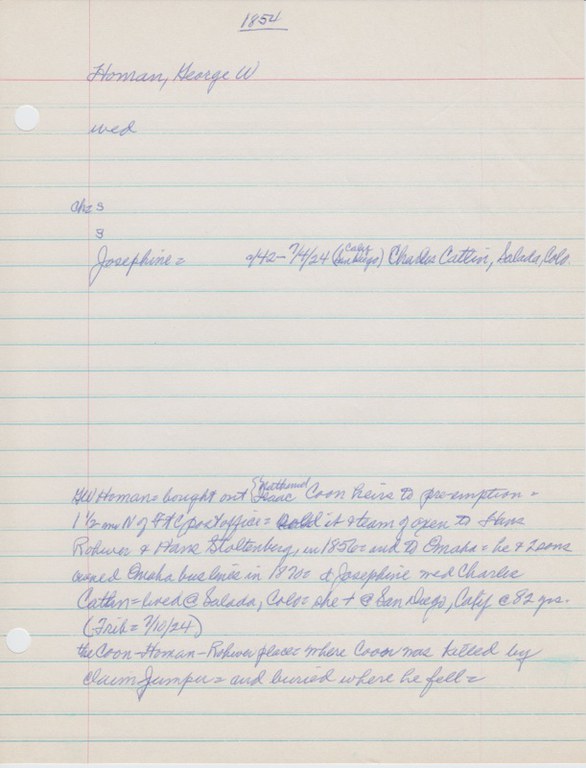 1854
Homan, George W
wed
chs s
s
Josephine = 1842 - 7/4/24 (Calif San Diego) Charles Catlin, Salada, Colo.
GW Homan = bought out Nathaniel Isaac Coon heirs to pre-emption =
1 1/2 mi N of Ft C post office = sold it & team of oxen to Hans
Rohwer & Hans Stoltenberg, in 1856 = and to Omaha = he & 2 sons
owned Omaha bus lines in 1870s d Josephine wed Charles
Catlin = lived @ Salada, Colo = she + @ San Diego, Calif @ 82 yrs.
(Trib = 7/10/24)
the Coon - Homan - Rohwer place = where Coon was killed by
claim jumper = and buried where he fell =